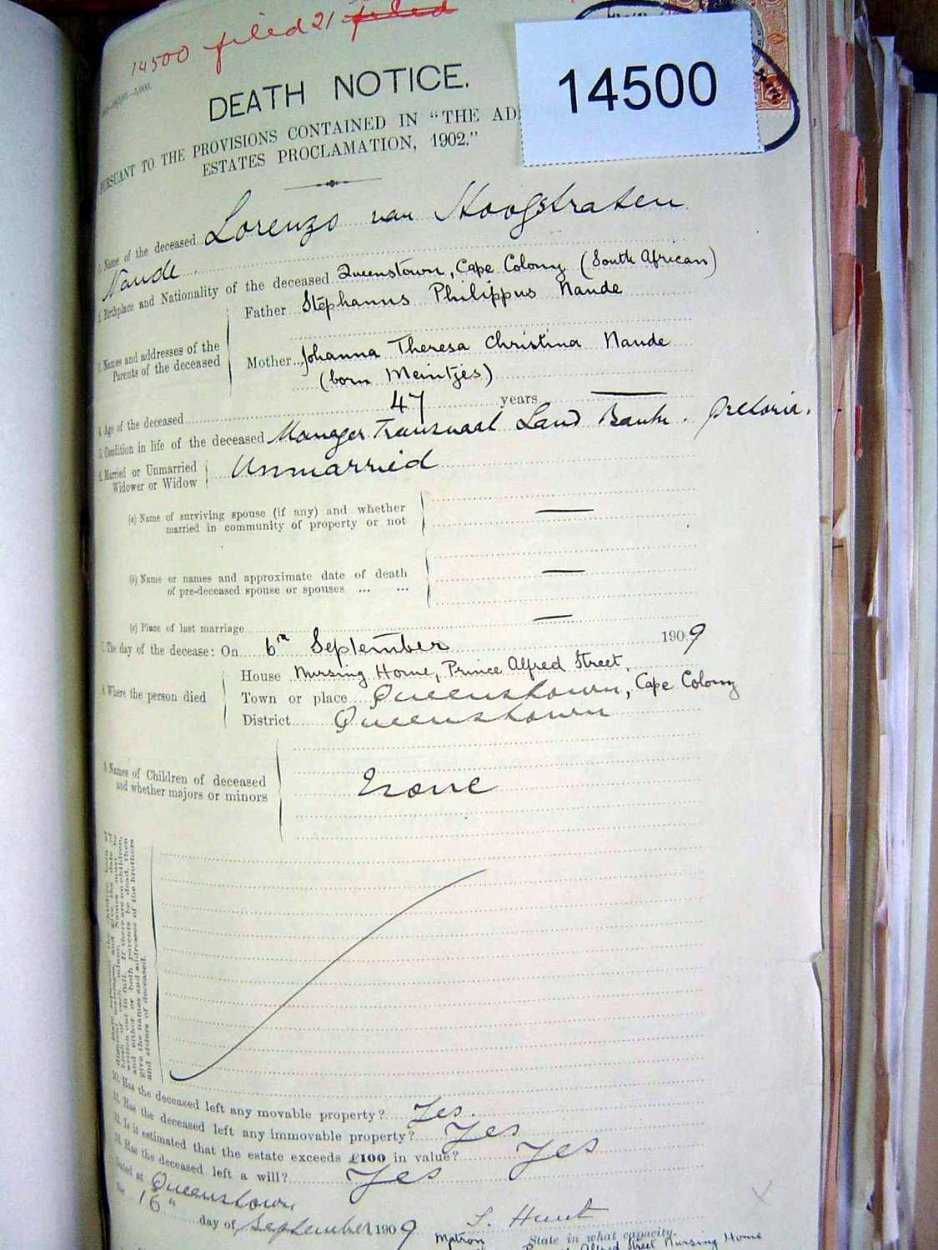 14500 filed 21 filed
14500
DEATH NOTICE.
PURSUANT TO THE PROVISIONS CONTAINED IN "THE AD
ESTATES PROCLAMATION, 1902."
1. Name of the deceased Lorenzo van Hoogstraten
Naude
2. Birthplace and Nationality of the deceased Queenstown, Cape Colony (South African)
3. Names and addresses of the Parents of the deceased
Father Stephanus Philippus Naude
Mother Johanna Theresa Christina Naude
(born Meintjes)
4. Age of the deceased 47 years —
5. Condition in life of the deceased Manager Transvaal Land Bank. Pretoria.
6. Married or Unmarried
Widower or Widow Unmarried
(a) Name of surviving spouse (if any) and whether
married in community of property or not —
(b) Name or names and approximate date of death
of pre-deceased spouse or spouses ... ... —
(c) Place of last marriage —
7. The day of the decease: On 6th September 1909
8. Where the person died
House Nursing Home, Prince Alfred Street,
Town or place Queenstown, Cape Colony
District Queenstown
9. Names of Children of deceased
and whether majors or minors None
give the names and addresses of the brothers
and sisters of deceased.
10. Has the deceased left any movable property? Yes.
11. Has the deceased left any immovable property? Yes
12. Is it estimated that the estate exceeds £100 in value? Yes
13. Has the deceased left a will? Yes
Dated at Queenstown
the 16" day of September 1909
S. Hunt
Matron State in what capacity.
Alfred Street Nursing Home